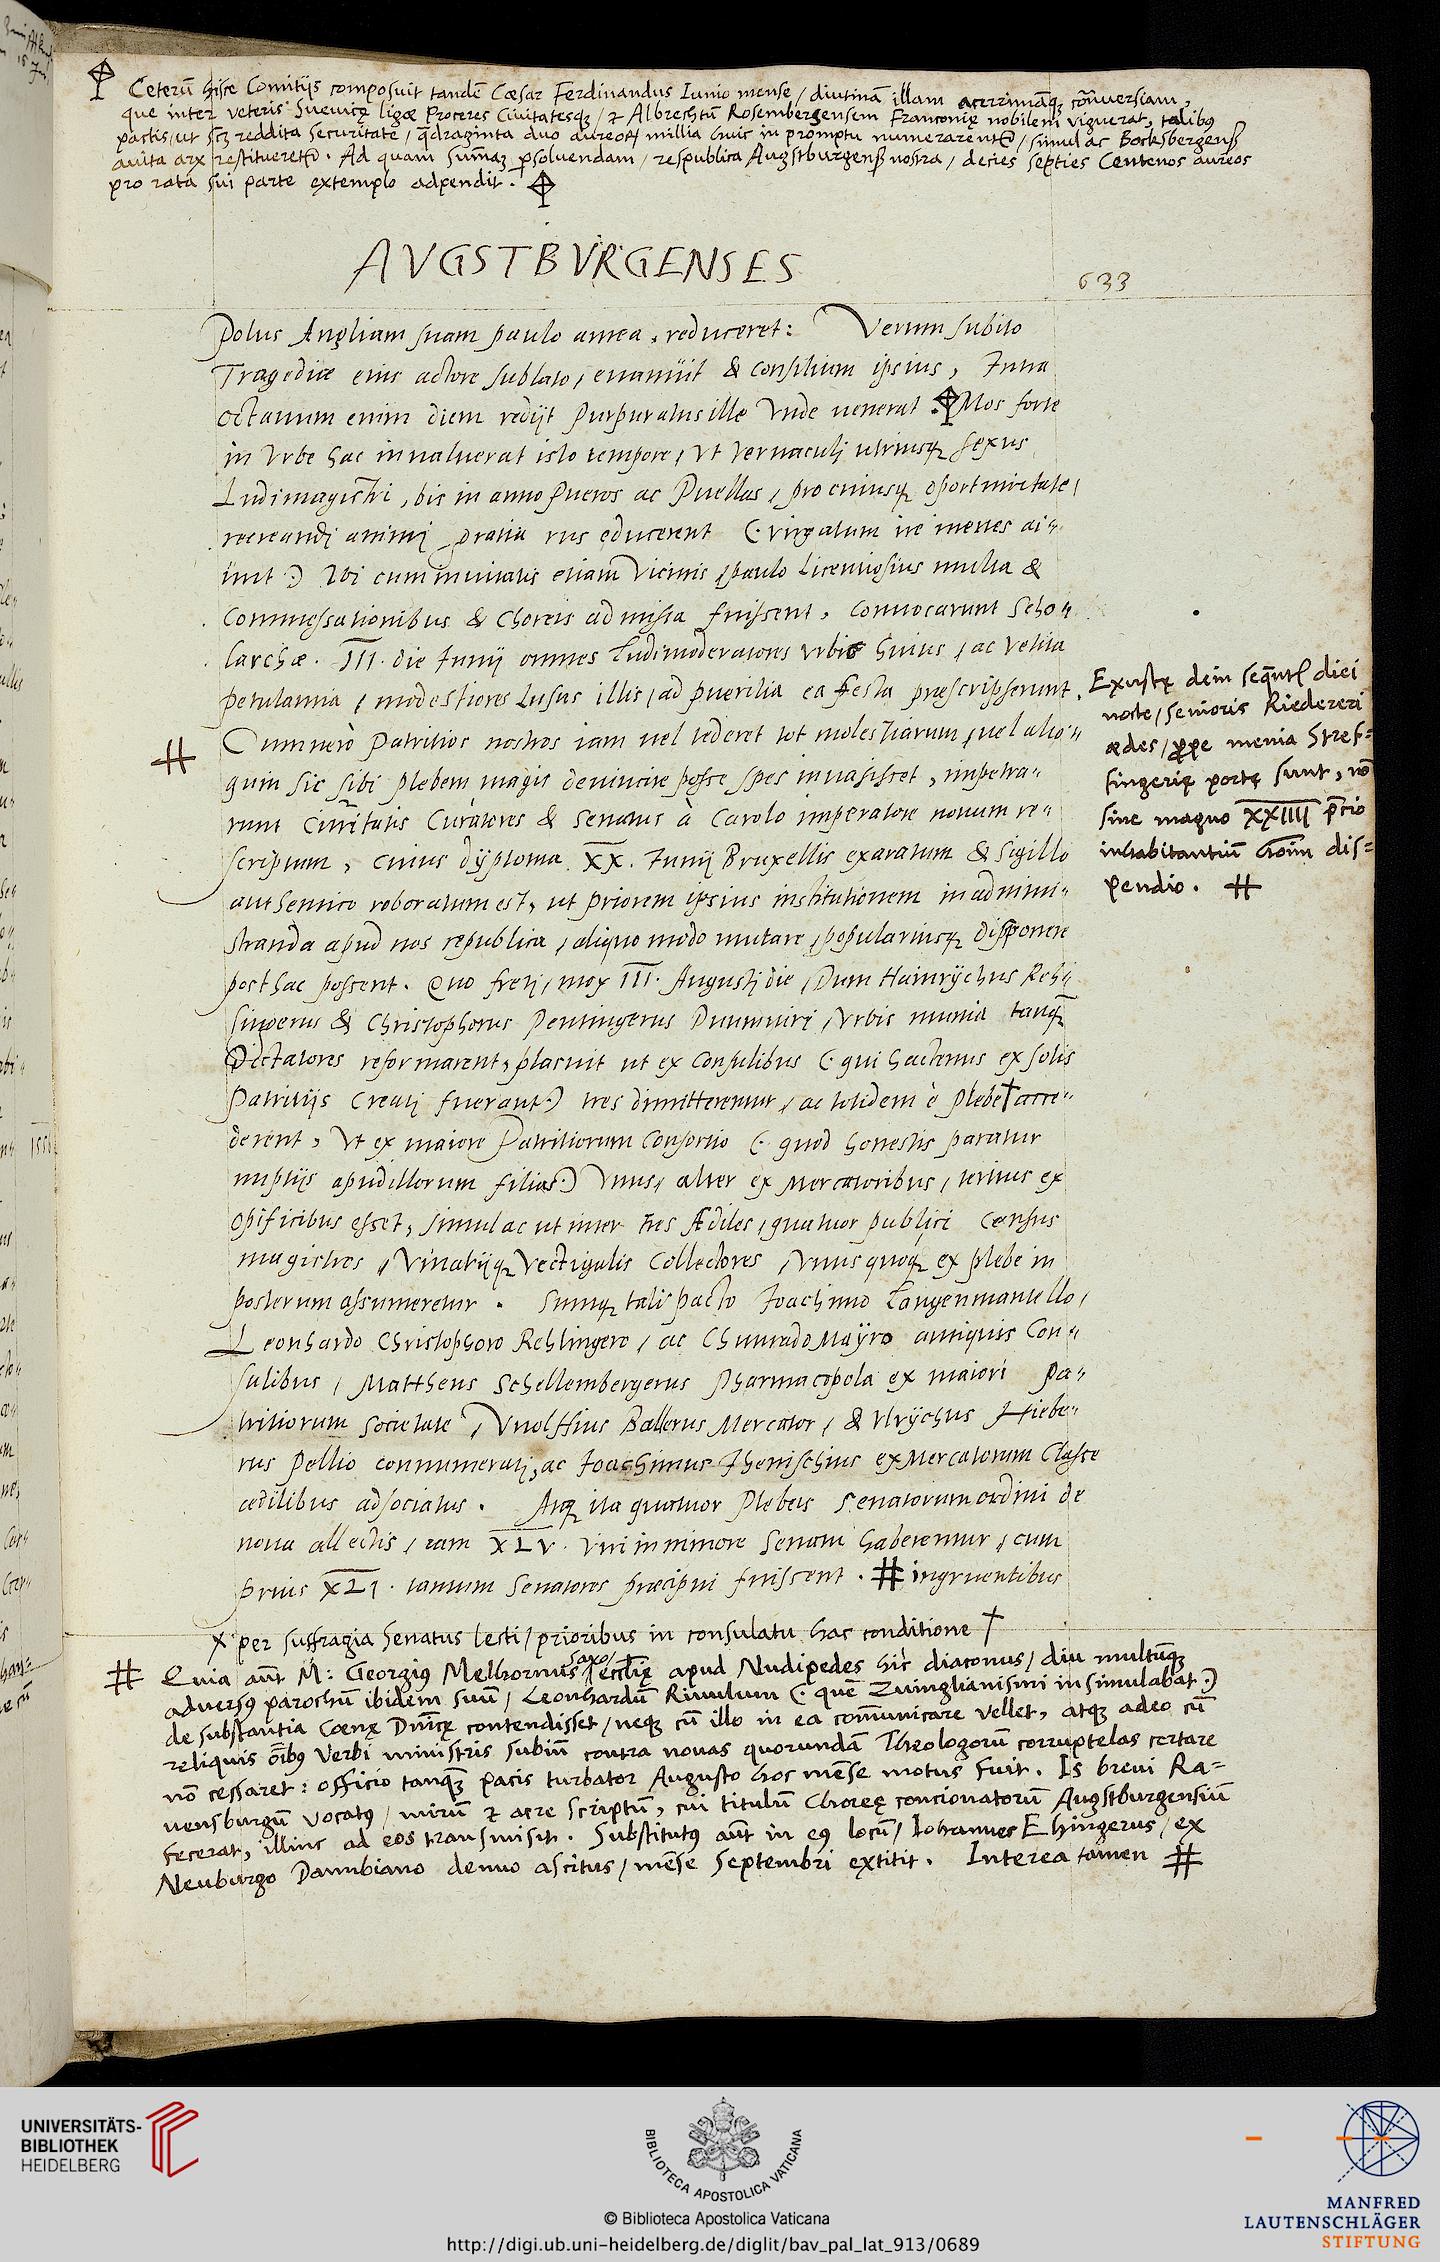 Ceterū hisce Comitijs composuit tandē Cæsar Ferdinandus Iunio mense / diutinā illam acerrimāq; cōn̄versiam,
que inter veteris Suevicę ligæ Proceres Civitatesq; / & Albrechtū Rosembergensem Franconię nobilem viguerat, talibus
pactis / ut scz reddita securitate / q̄draginta duo aureorū millia huic in promptu numerarentr̄ / simul ac Bocksbergensis
avita arx restitueretr̄. Ad quam sum̄az p̄soluendam / respublica Augstburgensis nostra / decies septies Centenos aureos
pro rata sui parte extemplo adpendit.
AVGSTBVRGENSES
633
Polus Angliam suam paulo antea, reduceret: Verum subito
Tragediæ eius actore sublato, euanuit & consilium ipsius, Intra
octauum enim diem redijt Purpuratus ille vnde uenerat. Mos forte
in Vrbe hac inualuerat isto tempore, Vt Vernaculj utriusq; sexus
Ludimagistri, bis in anno Pueros ac Puellas, pro cuiusq; oportunitate,
recreandj animj gratia rus educerent (virgatum ire inertes ai=
unt) Vbi cum inuitatis etiam Vicinis, paulo Licentiosius multa &
Commessationibus & Choreis admista fuissent, Conuocarunt Scho=
larchæ. III. die Junij omnes Ludimoderatores Vrbis huius, ac Vetita
petulantia, modestiores Lusus illis, ad puerilia ea festa præscripserunt.
Cum uerò Patritios nostros iam uel tederet tot molestiarum, uel alio=
quin sic sibi plebem magis deuincire posse spes inuasisset, impetra=
runt Ciuitatis Curatores & Senatus à Carolo imperatore nouum re=
scriptum, cuius dyploma XX. Junij Bruxellis exaratum & Sigillo
authentico roboratum est, ut priorem ipsius institutionem in admini=
stranda apud nos republica, aliquo modo mutare, populariusq; disponere
posthac possent. Quo fretj, mox III. Augustj die, Dum Hainrychus Reh=
lingerus & Christophorus Peutingerus Duumuirj, Vrbis munia tanq̄
Dictatores reformarent, placuit ut ex Consulibus (qui hactenus ex solis
Patritijs Creatj fuerant) tres dimitterentur, ac totidem è Plebe † acce=
derent, Vt ex maiore Patritiorum Consortio (quod honestis paratur
nuptijs apud illorum filias) Vnus, alter ex Mercatoribus, tertius ex
opificibus esset, simul ac ut inter tres Ædiles, quatuor publici Census
magistros, Vinatijq; Vectigalis Collectores, Vnus quoq; ex plebe in
posterum assumeretur. Suntq; tali pacto Joachimo Langenmantello,
Leonhardo Christophoro Rehlingero, ac Chunrado Mayro antiquis Con=
sulibus, Mattheus Schellembergerus Pharmacopola ex maiori Pa=
tritiorum societate, Vuolffius Ballerus Mercator, & Vlrychus Hiebe=
rus Pellio connumeratj, ac Joachimus Jhenischius ex Mercatorum Classe
ædilibus adsociatus. Atq; ita quatuor Plebeis Senatorum ordini de
nouo allectis, iam XLV. viri in minore Senatu haberentur, cum
prius XLI. tantum Senatores præcipui fuissent. # ingruentibus
Exustę dein seq̄ntis diei
nocte / senioris Riedereri
ædes / ꝓpe menia Stref=
fingerię portę sunt, nō
sine magno XXIIII p̄cio
inhabitantiū hoīm dis=
pendio. #
x per suffragia Senatus lecti / prioribus in consulatu hac conditione †
# Quia aūt M: Georgius Melhornus saxo / ecclīę apud Nudipedes hîc diaconus / diu multūq;
adversus parochū ibidem suū / Leonhardū Riuulum (quē Zuinglianismi insimulabat)
de substantia Cœnę Dn̄icę contendisset / neq; cū illo in ea com̄unicare vellet, atq; adeo cū
reliquis oībus Verbi ministris subin̄ contra novas quorundā Theologorū corruptelas certare
nō cessaret: officio tanq̄ pacis turbator Augusto hoc mēse motus fuit. Is brevi Ra=
vensburgū vocatus / mirū & acre scriptū, cui titulū Choreę concionatorū Augstburgensiū
fecerat, illinc ad eos transmisit. Substitutus aūt in eius locū / Iohannes Ehingerus / ex
Neuburgo Danubiano denuo ascitus / mēse Septembri extitit. Interea tamen #
UNIVERSITÄTS-
BIBLIOTHEK
HEIDELBERG
BIBLIOTECA APOSTOLICA VATICANA
© Biblioteca Apostolica Vaticana
http://digi.ub.uni-heidelberg.de/diglit/bav_pal_lat_913/0689
MANFRED
LAUTENSCHLÄGER
STIFTUNG